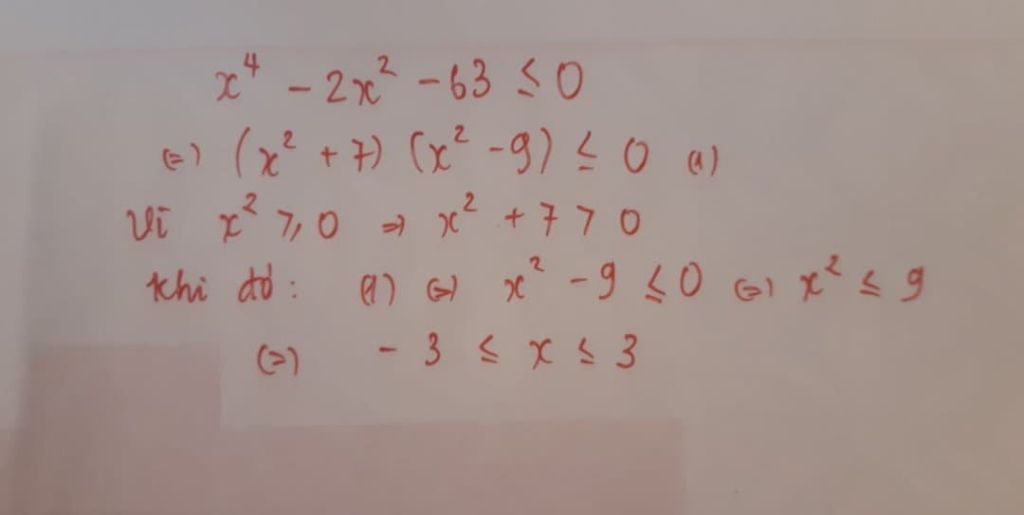 x⁴ - 2x² - 63 ≤ 0
(=) (x² + 7) (x² - 9) ≤ 0 (1)
Vì x² ≥ 0 => x² + 7 > 0
Khi đó: (1) (=) x² - 9 ≤ 0 (=) x² ≤ 9
(=) - 3 ≤ x ≤ 3